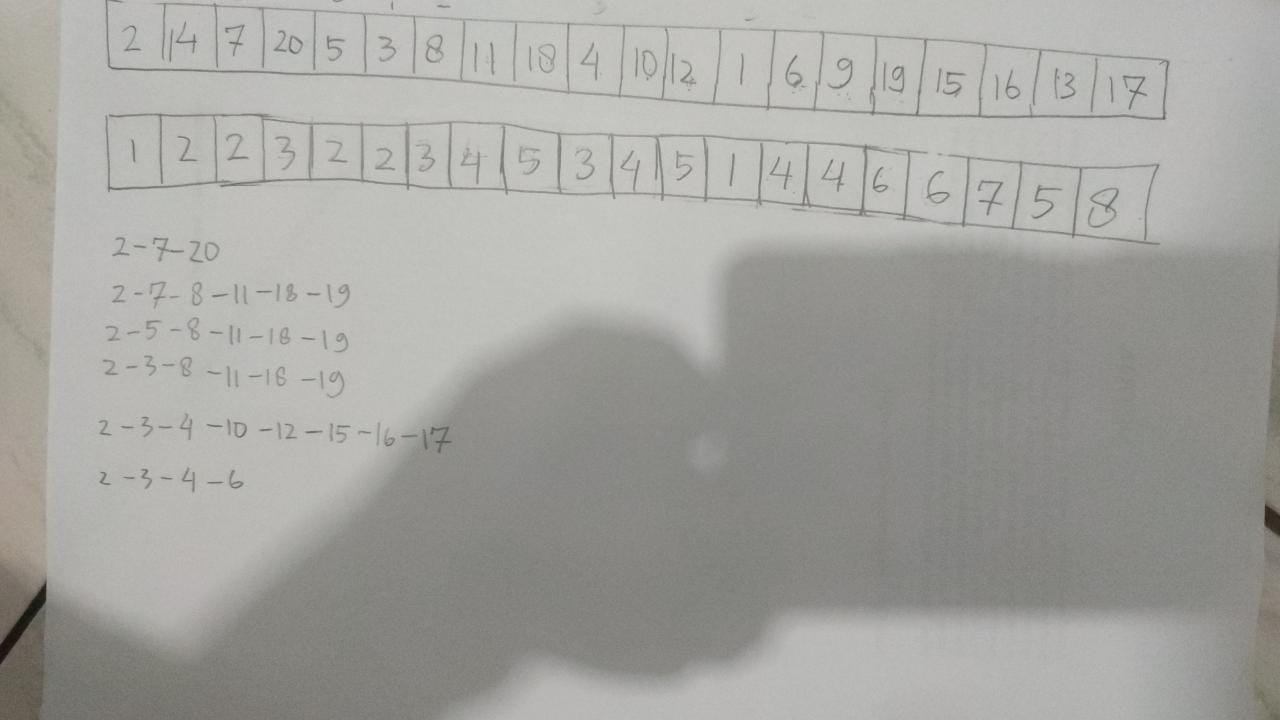 2 14 7 20 5 3 8 11 18 4 10 12 1 6 9 19 15 16 13 17
1 2 2 3 2 2 3 4 5 3 4 5 1 4 4 6 6 7 5 8
2-7-20
2-7-8-11-18-19
2-5-8-11-18-19
2-3-8-11-18-19
2-3-4-10-12-15-16-17
2-3-4-6